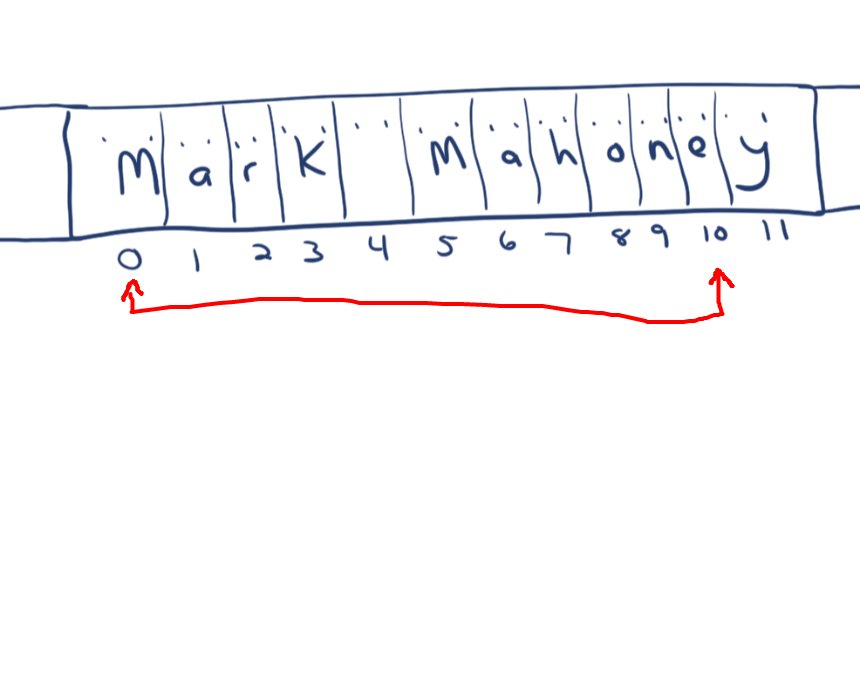 'M' 'a' 'r' 'K' ' ' 'M' 'a' 'h' 'o' 'n' 'e' 'y'
0 1 2 3 4 5 6 7 8 9 10 11